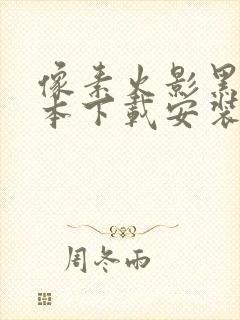 像素火影黑
本下载安装
周冬雨